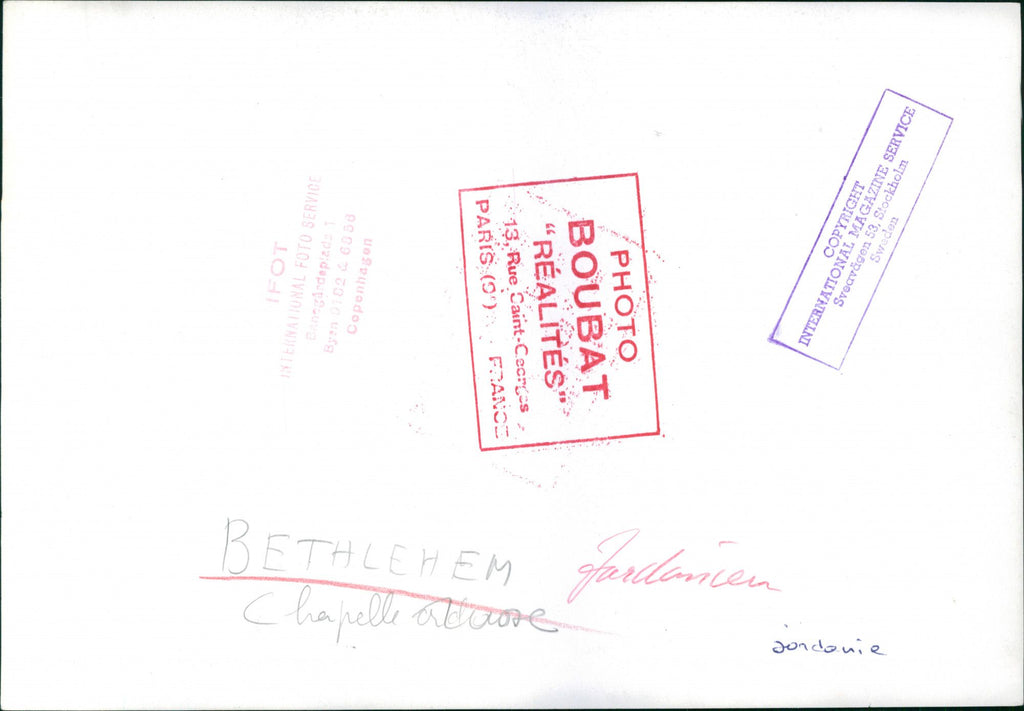 IFOT
INTERNATIONAL FOTO SERVICE
Copenhagen
PHOTO
BOUBAT
“RÉALITÉS”
13, Rue Saint-Georges
PARIS (9e) FRANCE
COPYRIGHT
INTERNATIONAL MAGAZINE SERVICE
Sveavägen 53, Stockholm
Sweden
BETHLEHEM
Chapelle
Jordanien
jordanie